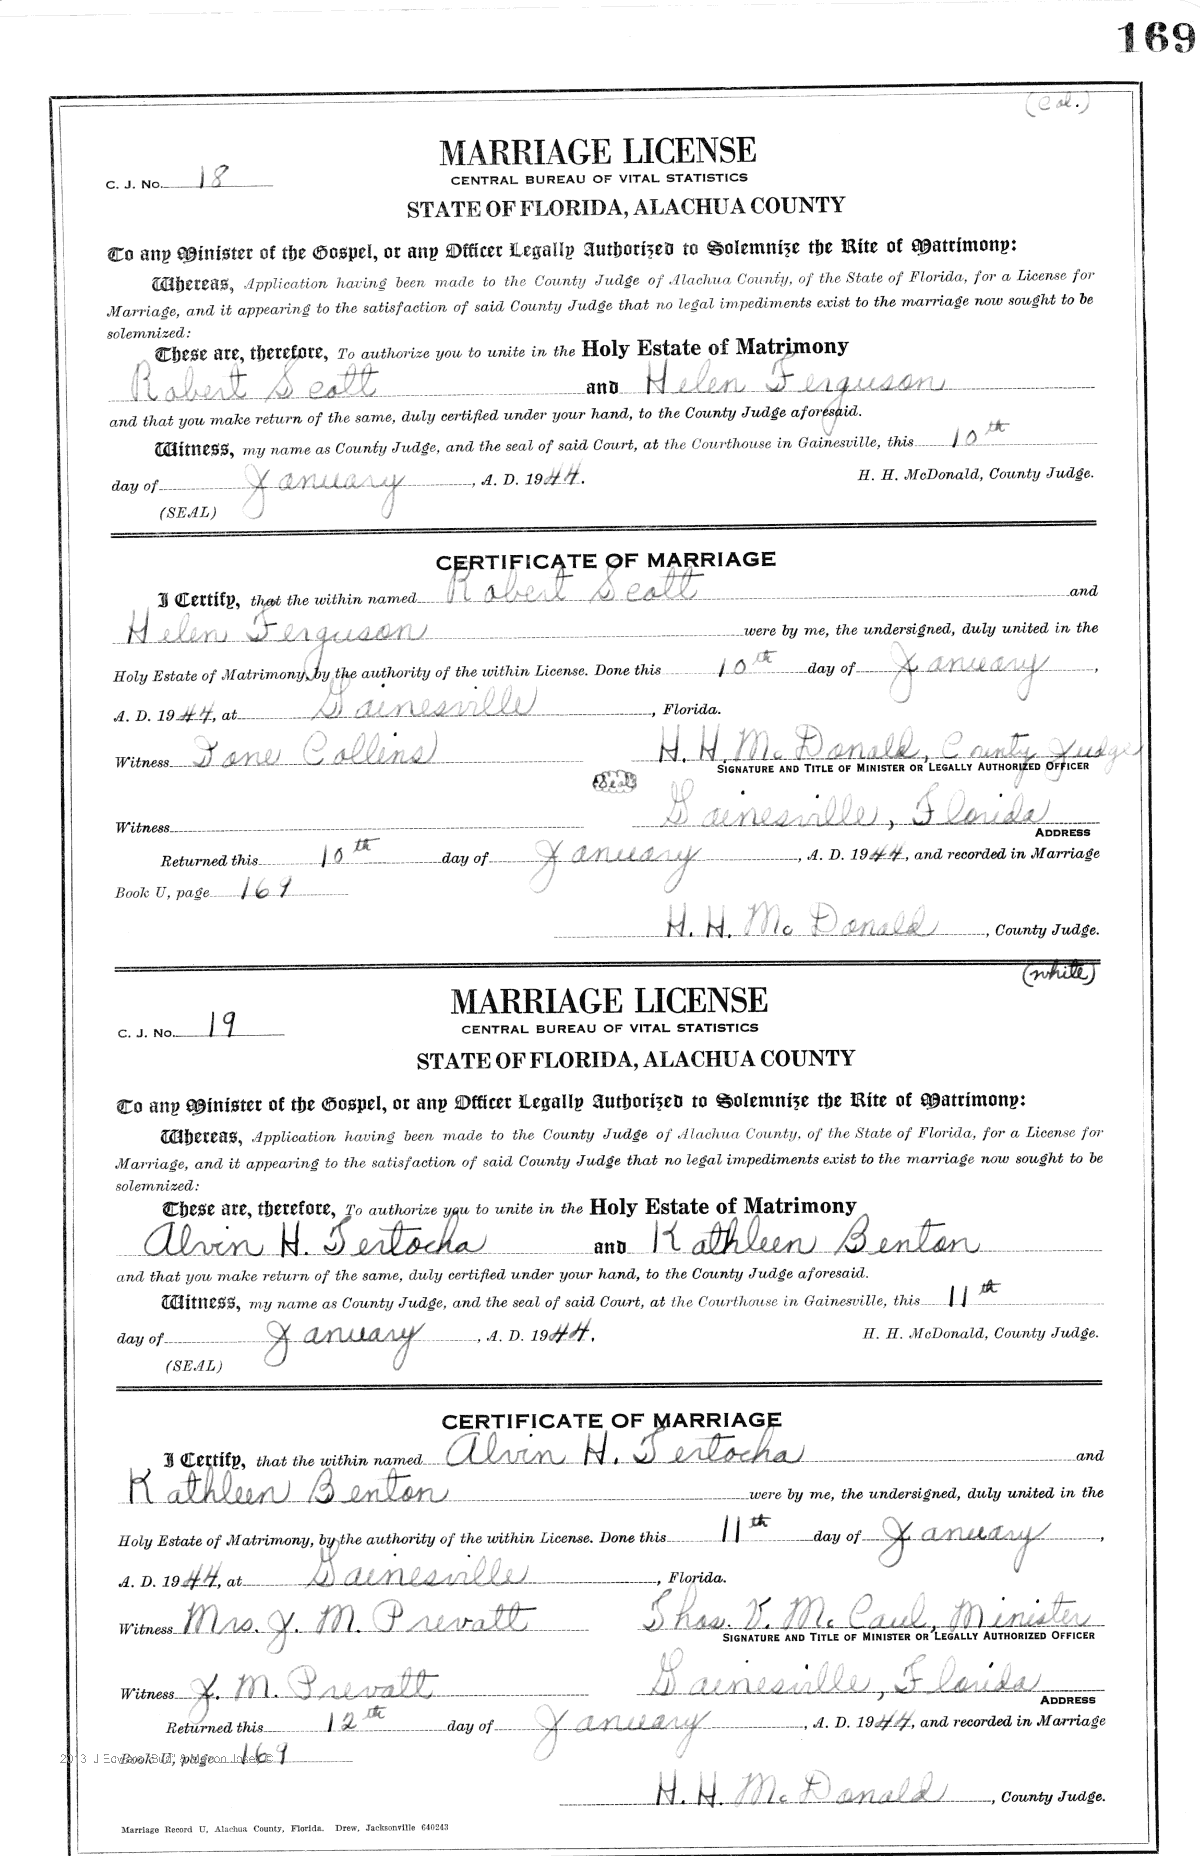 169
(Col.)
MARRIAGE LICENSE
C. J. No. 18
CENTRAL BUREAU OF VITAL STATISTICS
STATE OF FLORIDA, ALACHUA COUNTY
To any Minister of the Gospel, or any Officer Legally Authorized to Solemnize the Rite of Matrimony:
Whereas, Application having been made to the County Judge of Alachua County, of the State of Florida, for a License for
Marriage, and it appearing to the satisfaction of said County Judge that no legal impediments exist to the marriage now sought to be
solemnized:
These are, therefore, To authorize you to unite in the Holy Estate of Matrimony
Robert Scott and Helen Ferguson
and that you make return of the same, duly certified under your hand, to the County Judge aforesaid.
Witness, my name as County Judge, and the seal of said Court, at the Courthouse in Gainesville, this 10th
day of January, A. D. 1944. H. H. McDonald, County Judge.
(SEAL)
CERTIFICATE OF MARRIAGE
I Certify, that the within named Robert Scott and
Helen Ferguson were by me, the undersigned, duly united in the
Holy Estate of Matrimony, by the authority of the within License. Done this 10th day of January,
A. D. 1944, at Gainesville, Florida.
Witness Jane Collins H. H. McDonald, County Judge
SIGNATURE AND TITLE OF MINISTER OR LEGALLY AUTHORIZED OFFICER
(Seal)
Gainesville, Florida
Witness ADDRESS
Returned this 10th day of January, A. D. 1944, and recorded in Marriage
Book U, page 169
H. H. McDonald, County Judge.
(white)
MARRIAGE LICENSE
C. J. No. 19
CENTRAL BUREAU OF VITAL STATISTICS
STATE OF FLORIDA, ALACHUA COUNTY
To any Minister of the Gospel, or any Officer Legally Authorized to Solemnize the Rite of Matrimony:
Whereas, Application having been made to the County Judge of Alachua County, of the State of Florida, for a License for
Marriage, and it appearing to the satisfaction of said County Judge that no legal impediments exist to the marriage now sought to be
solemnized:
These are, therefore, To authorize you to unite in the Holy Estate of Matrimony
Alvin H. Tertocha and Kathleen Benton
and that you make return of the same, duly certified under your hand, to the County Judge aforesaid.
Witness, my name as County Judge, and the seal of said Court, at the Courthouse in Gainesville, this 11th
day of January, A. D. 1944. H. H. McDonald, County Judge.
(SEAL)
CERTIFICATE OF MARRIAGE
I Certify, that the within named Alvin H. Tertocha and
Kathleen Benton were by me, the undersigned, duly united in the
Holy Estate of Matrimony, by the authority of the within License. Done this 11th day of January,
A. D. 1944, at Gainesville, Florida.
Witness Mrs. J. M. Prevatt Thos. V. McCaul, Minister
SIGNATURE AND TITLE OF MINISTER OR LEGALLY AUTHORIZED OFFICER
Witness J. M. Prevatt Gainesville, Florida
ADDRESS
Returned this 12th day of January, A. D. 1944, and recorded in Marriage
Book U, page 169
H. H. McDonald, County Judge.
Marriage Record U, Alachua County, Florida. Drew, Jacksonville 640243